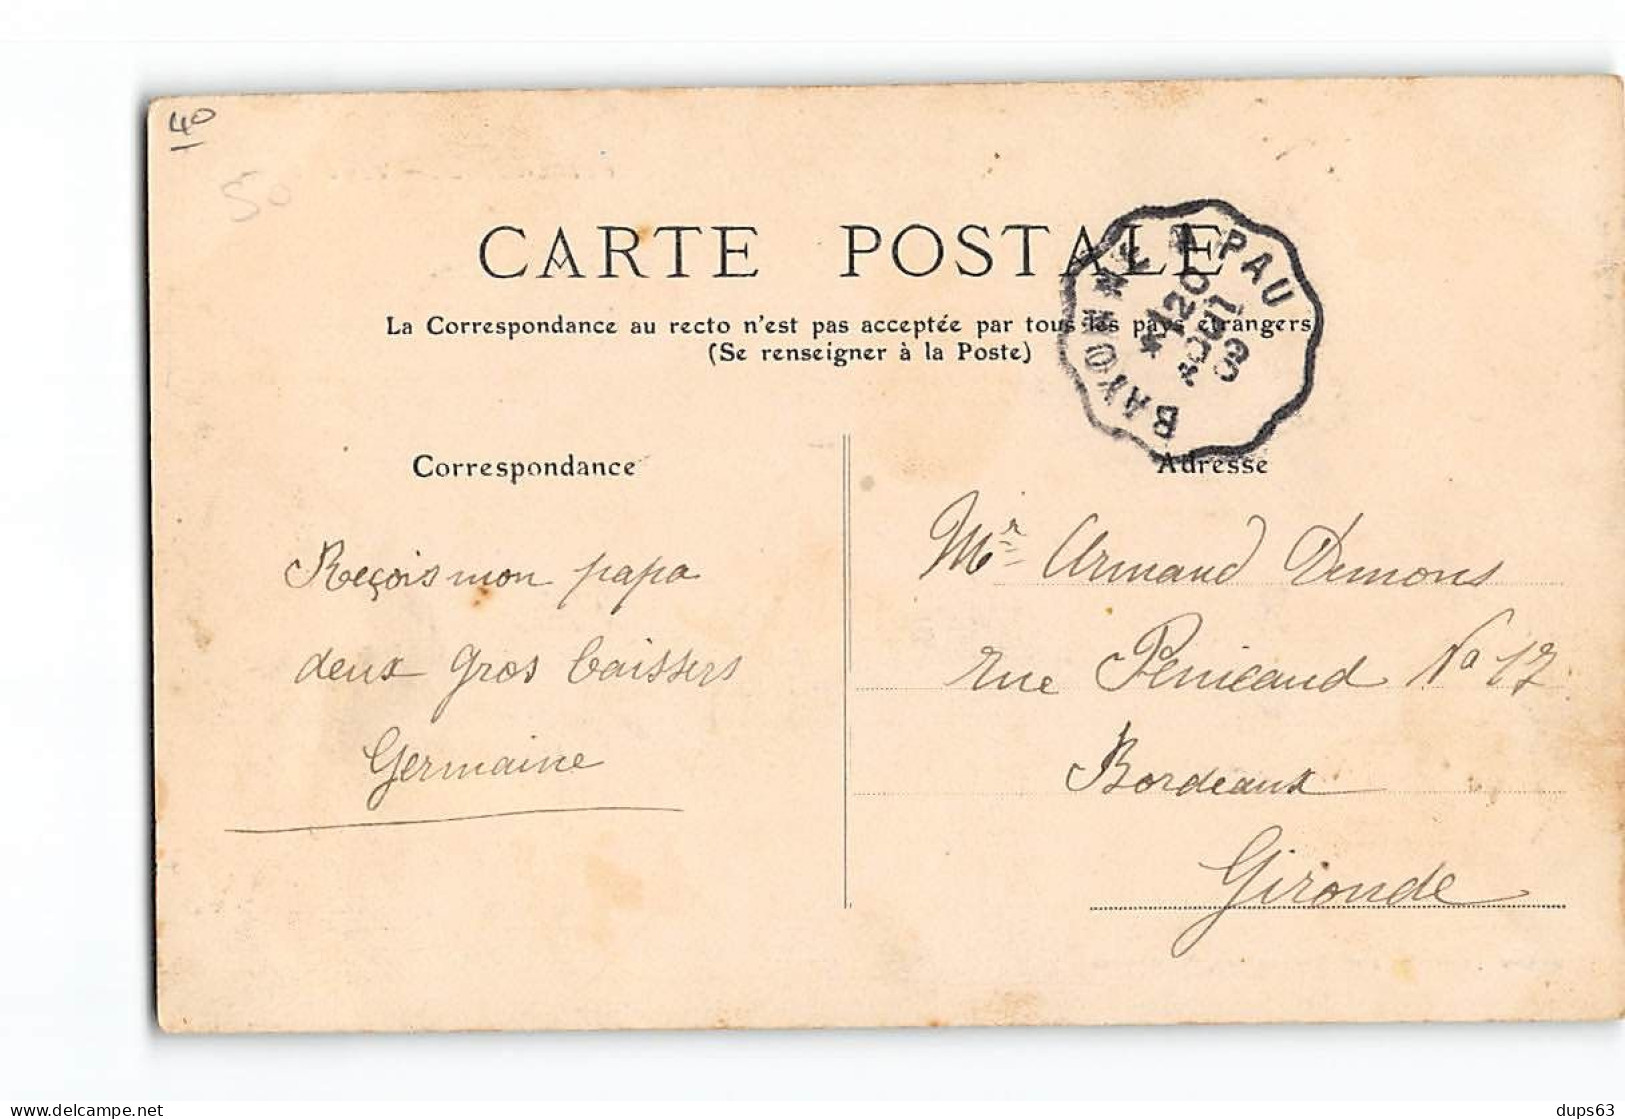 40
50
CARTE POSTALE
La Correspondance au recto n'est pas acceptée par tous les pays étrangers
(Se renseigner à la Poste)
BAYONNE A PAU
20
Correspondance
Adresse
Reçois mon papa
deux gros baissers
Germaine
Mr Armand Demons
rue Penicaud No 17
Bordeaux
Gironde
delcampe.net
dups63